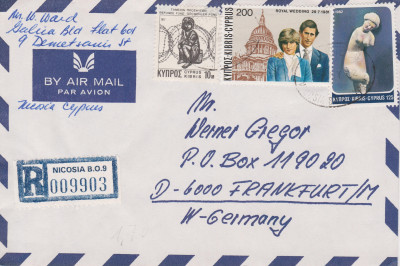 Mr. W. Ward
Galica Bld Flat 601
9 Demetsanis St
BY AIR MAIL
PAR AVION
Nicosia Cyprus
R
NICOSIA B.O.9
009903
ΚΥΠΡΟΣ CYPRUS KIBRIS 10
ROYAL WEDDING 29.7.1981
200
ΚΥΠΡΟΣ KIBRIS CYPRUS
ΚΥΠΡΟΣ KIBRIS CYPRUS 125
Mr.
Werner Gregor
P.O.Box 119020
D-6000 FRANKFURT/M
W-Germany